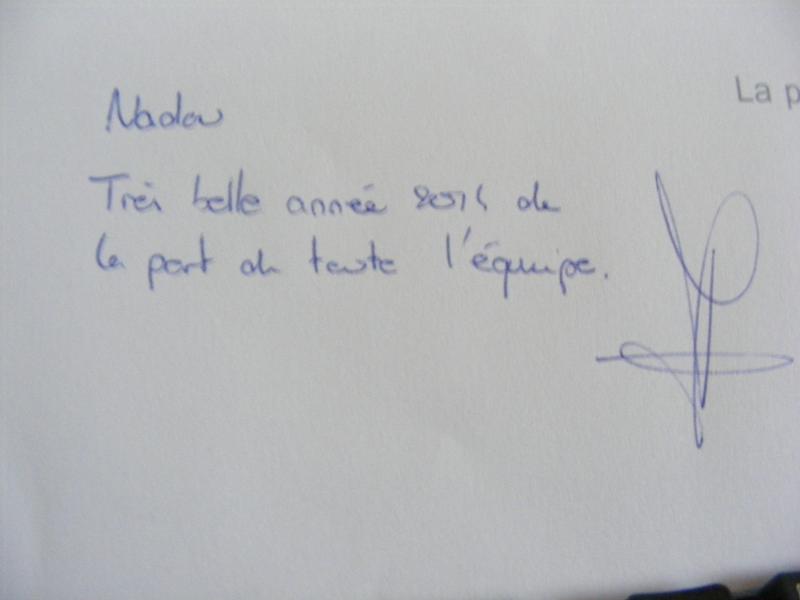 Nadou
La p
Très belle année 2014 de
la part de toute l'équipe.